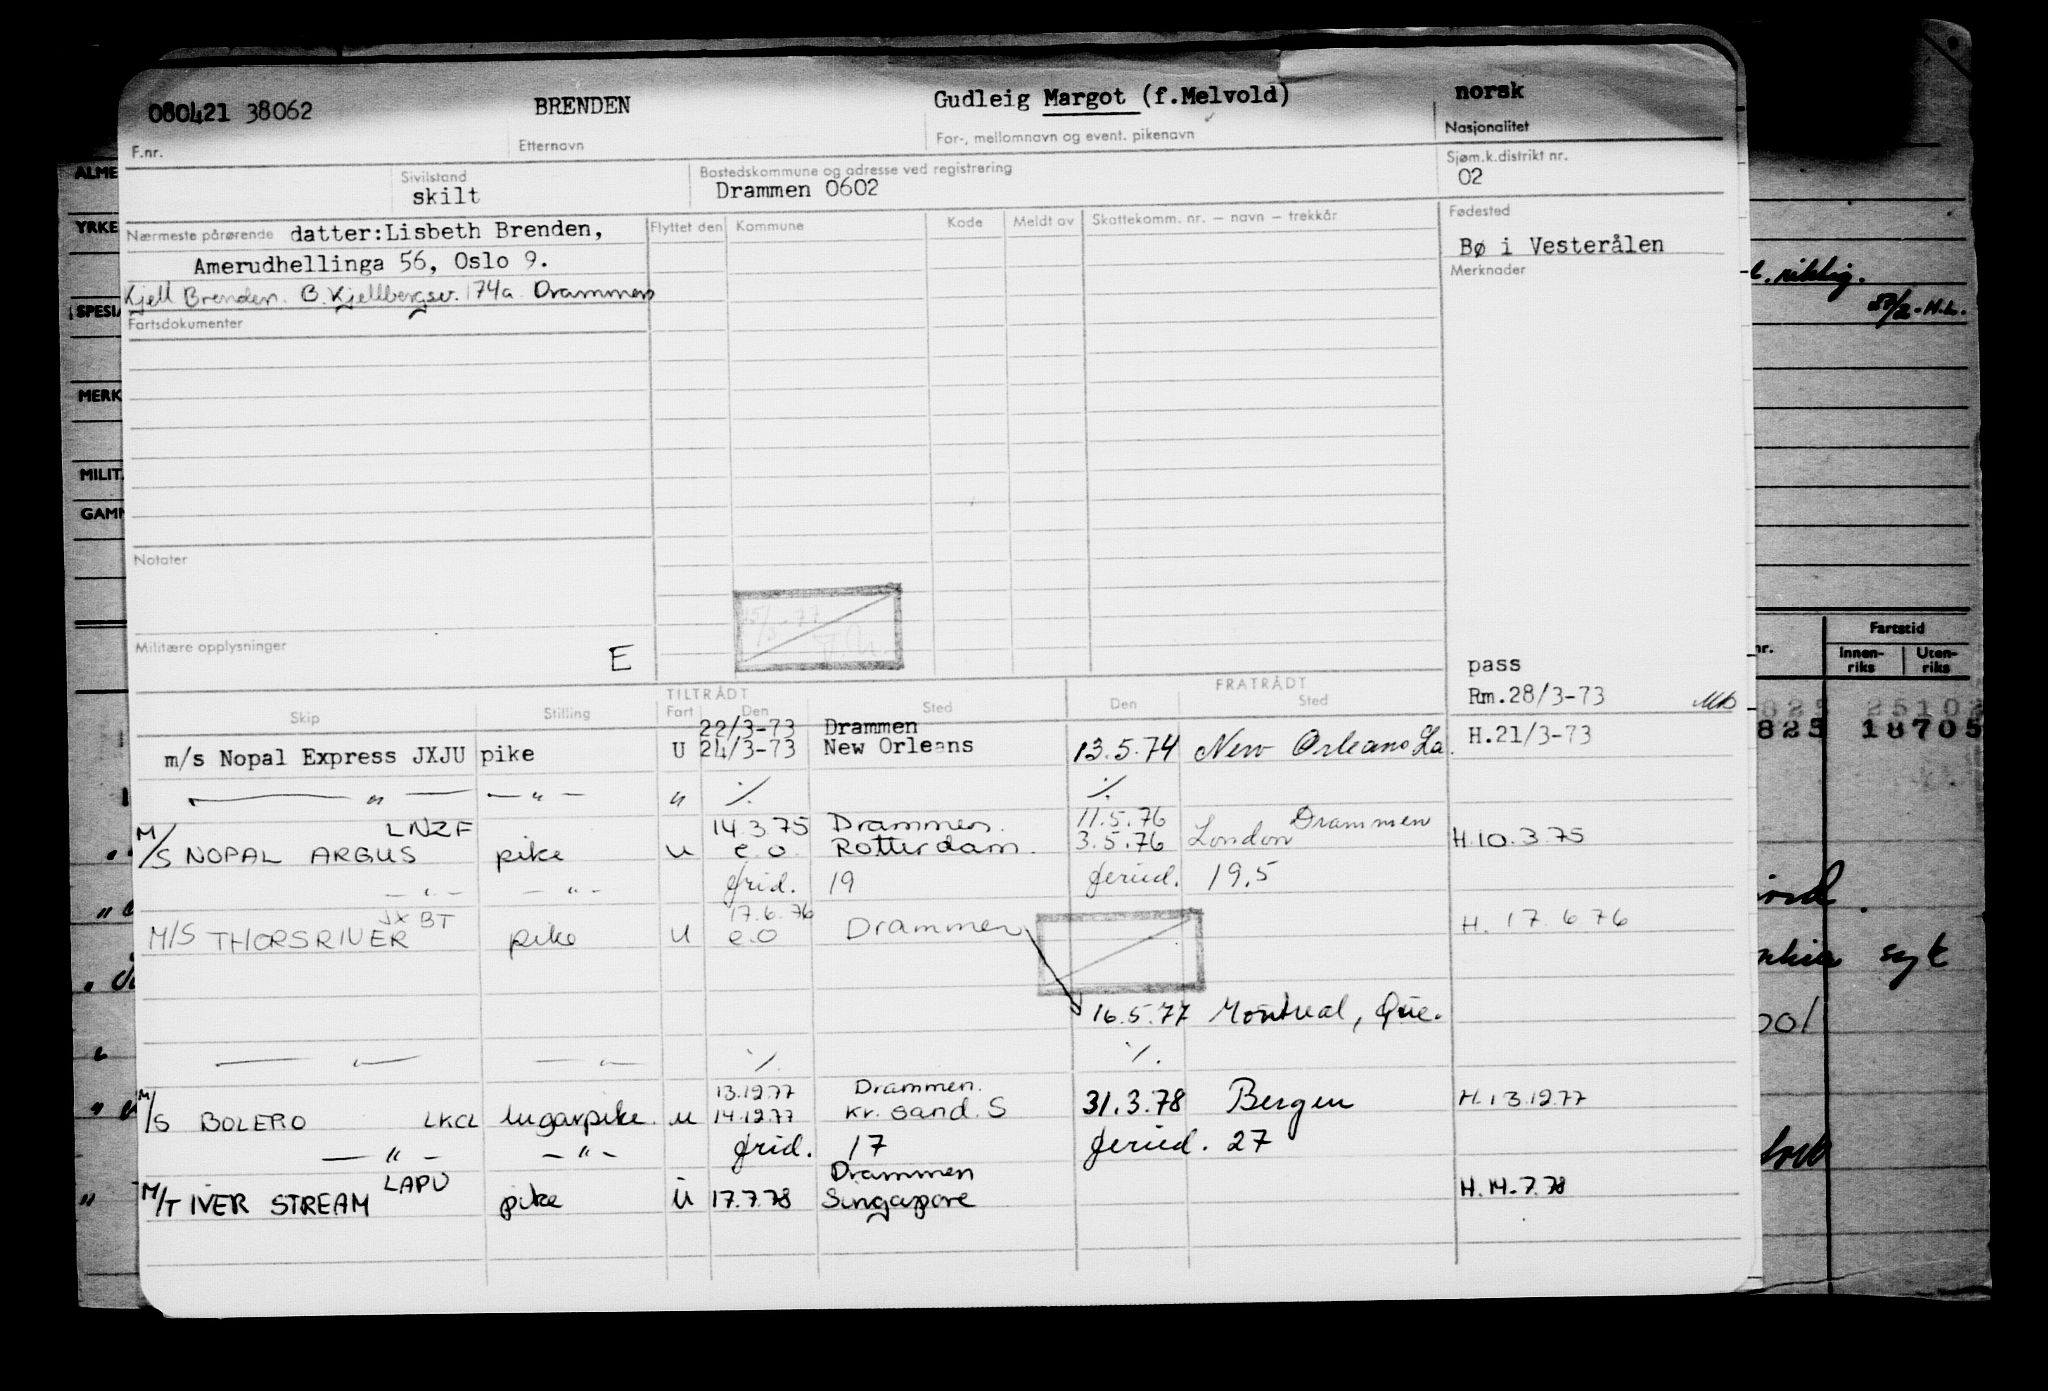 080421 38062 BRENDEN Gudleig Margot (f.Melvold) norsk
F.nr. Etternavn For-, mellomnavn og event. pikenavn Nasjonalitet
Sivilstand Bostedskommune og adresse ved registrering Sjøm.k.distrikt nr.
skilt Drammen 0602 02
Nærmeste pårørende datter:Lisbeth Brenden, Flyttet den Kommune Kode Meldt av Skattekomm. nr. — navn — trekkår Fødested
Amerudhellinga 56, Oslo 9. Bø i Vesterålen
Kjell Brenden. B. Kjellbergsv. 174a Drammen Merknader
Fartsdokumenter
Notater
Militære opplysninger E
pass
TILTRÅDT FRATRÅDT Rm.28/3-73
Skip Stilling Fart Den Sted Den Sted
22/3-73 Drammen
m/s Nopal Express JXJU pike U 24/3-73 New Orleans 13.5.74 New Orleans La. H.21/3-73
— " — — " — " ٪ ٪
LNZF 14.3.75 Drammen. 11.5.76 Drammen
M/S NOPAL ARGUS pike u e.o. Rotterdam. 3.5.76 London H.10.3.75
— " — — " — frid. 19 feried. 19.5
JXBT 17.6.76
M/S THORSRIVER pike u e.o Drammen H. 17.6.76
16.5.77 Montreal, Que.
— " — — " — ٪ ٪.
13.12.77 Drammen.
M/S BOLERO LKCL lugarpike. u 14.12.77 Kr. sand. S 31.3.78 Bergen H.13.12.77
— " — — " — frid. 17 feried. 27
LAPU Drammen
M/T IVER STREAM pike u 17.7.78 Singapore H.14.7.78
ALME
YRKE
SPESIA
MERK
MILIT
GAMM
Fartstid
nr. Innen-riks Uten-riks
825 18705
syk